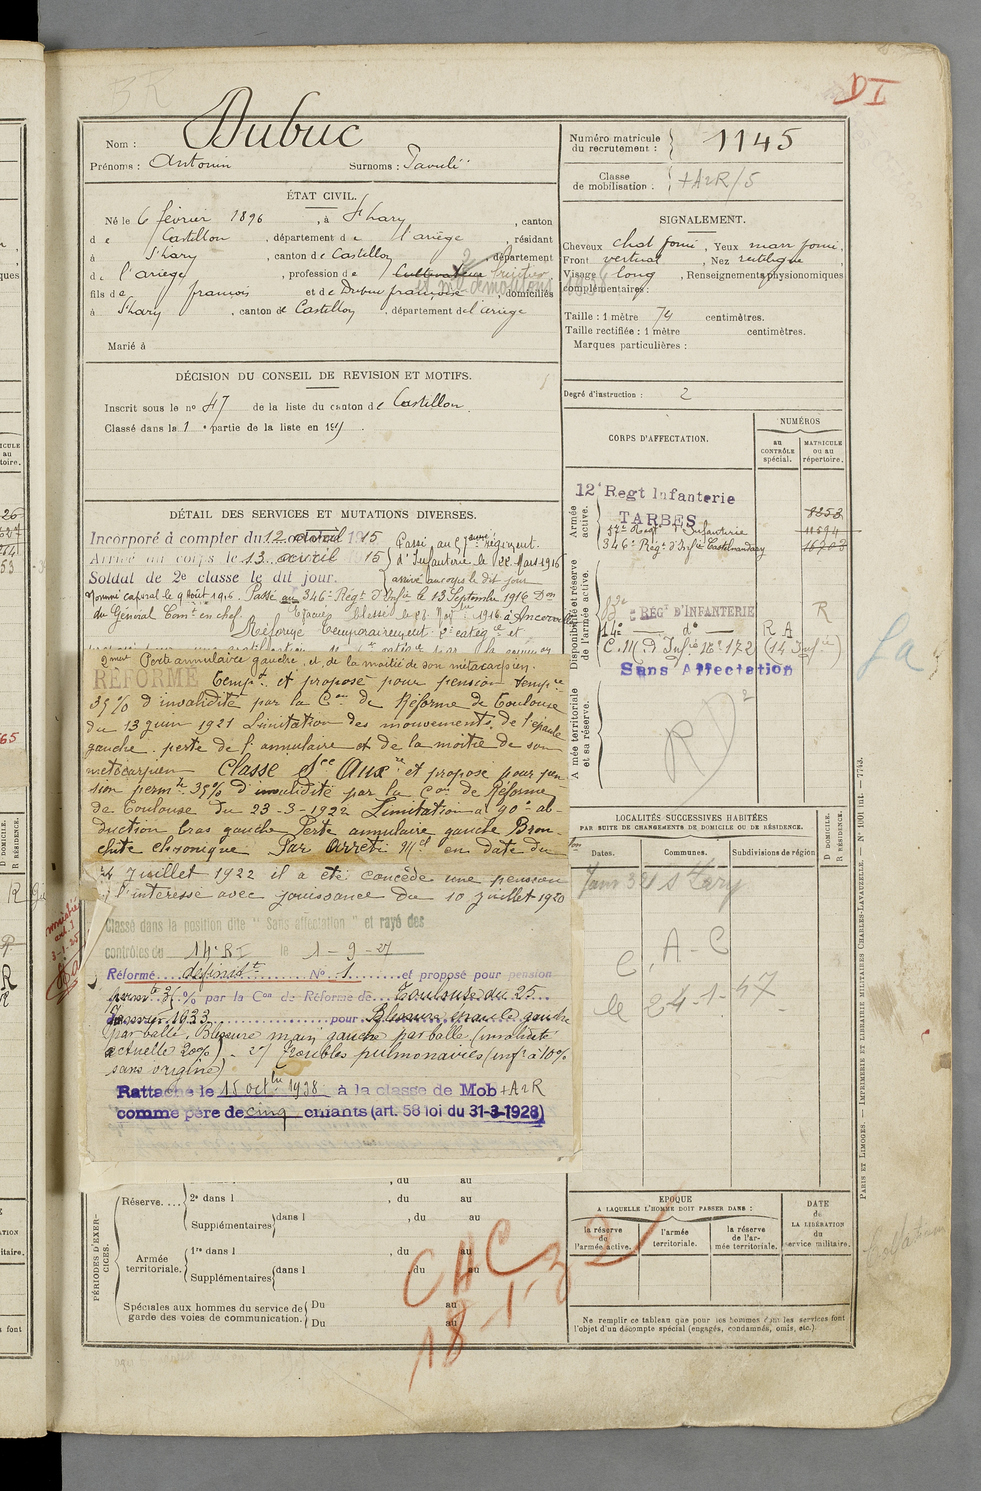 DI
Nom : Dubuc
Prénoms : Antonin Surnoms : Paouli
Numéro matricule du recrutement : 1145
Classe de mobilisation : +A2R/5
ÉTAT CIVIL.
Né le 6 février 1896, à St Lary, canton
de Castillon, département de l'ariège, résidant
à St Lary, canton de Castillon, département
de l'ariège, profession de Cultivateur
fils de françois et de Dubuc françoise, domiciliés
à St Lary, canton de Castillon, département de l'ariège
Marié à
SIGNALEMENT.
Cheveux chat foncé, Yeux marr foncé,
Front vertical, Nez rectiligne
Visage long, Renseignements physionomiques
complémentaires :
Taille : 1 mètre 74 centimètres.
Taille rectifiée : 1 mètre centimètres.
Marques particulières :
Degré d'instruction : 2
DÉCISION DU CONSEIL DE REVISION ET MOTIFS.
Inscrit sous le no 47 de la liste du canton de Castillon.
Classé dans la 1e partie de la liste en 191
DÉTAIL DES SERVICES ET MUTATIONS DIVERSES.
Incorporé à compter du 12 avril 1915
Arrivé au corps le 13 avril 1915
Soldat de 2e classe le dit jour.
Passé au 57ème Régiment
d'Infanterie le 22 Mars 1916
arrivé au corps le dit jour
Nommé caporal le 9 Août 1916. Passé au 346e Régt d'Infie le 13 Septembre 1916 Don
du Général Comt en chef.
Réformé temporairement 2e catégie et
Perte annulaire gauche, et de la moitié de son métacarpien.
RÉFORMÉ tempt et proposé pour pension tempre
35% d'invalidité par la Con de Réforme de Toulouse
du 13 juin 1921 Limitation des mouvements de l'épaule
gauche. perte de l'annulaire et de la moitié de son
métacarpien Classé Sce Auxre et proposé pour pen-
sion permte 35% d'invalidité par la Con de Réforme
de Toulouse du 23-3-1922 Limitation à 90° ab-
duction bras gauche Perte annulaire gauche Bron-
chite chronique Par arrêté Mel en date du
4 Juillet 1922 il a été concédé une pension
à l'intéressé avec jouissance du 10 juillet 1920
Classé dans la position dite "Sans affectation" et rayé des
contrôles du 14e RI le 1-9-27
Réformé définitt No 1 et proposé pour pension
permte % par la Con de Réforme de Toulouse du 25
1933 pour Blessure épaule gauche
par balle. Blessure main gauche par balle (invalidité
actuelle 20%) - 2) Troubles pulmonaires (inf à 10%
sans origine)
Rattaché le 15 octbre 1938 à la classe de Mob +A2R
comme père de cinq enfants (art. 58 loi du 31-3-1928)
CORPS D'AFFECTATION.
NUMÉROS
au CONTRÔLE spécial.
MATRICULE ou au répertoire.
Armée active.
12e Regt Infanterie
TARBES
57e Regt d'Infanterie 11594
346e Régt d'Infie Castelnaudary
Disponibilité et réserve de l'armée active.
RÉGt D'INFANTERIE R
14e do R A
C.M.D. Infie 16e 172 (14 Infie)
Sans Affectation
Armée territoriale et sa réserve.
RD2
La
LOCALITÉS SUCCESSIVES HABITÉES
PAR SUITE DE CHANGEMENTS DE DOMICILE OU DE RÉSIDENCE.
Dates. Communes. Subdivisions de région
D DOMICILE. R RÉSIDENCE.
Janv 38 St Lary
C.A-C
le 24-1-47
PÉRIODES D'EXERCICES.
, du au
Réserve.... 2e dans l , du au
Supplémentaires dans l , du au
Armée territoriale. 1re dans l , du au
Supplémentaires dans l , du au
Spéciales aux hommes du service de garde des voies de communication. Du au
Du au
CAC
18-1-32
EPOQUE
A LAQUELLE L'HOMME DOIT PASSER DANS :
la réserve de l'armée active.
l'armée territoriale.
la réserve de l'armée territoriale.
DATE de LA LIBÉRATION du service militaire.
Ne remplir ce tableau que pour les hommes dont les services font
l'objet d'un décompte spécial (engagés, condamnés, omis, etc.).
PARIS ET LIMOGES. — IMPRIMERIE ET LIBRAIRIE MILITAIRES CHARLES-LAVAUZELLE. — No 1001 int. — 7743.